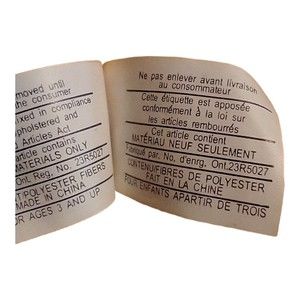 moved until
the consumer
ixed in compliance
pholstered and
Articles Act
article contains
MATERIALS ONLY
Ont. Reg. No. 23R5027
POLYESTER FIBERS
MADE IN CHINA
FOR AGES 3 AND UP
Ne pas enlever avant livraison
au consommateur
Cette étiquette est apposée
conformément à la loi sur
les articles rembourrés
Cet article contient
MATÉRIAU NEUF SEULEMENT
Fabriqué par. No. d'enrg. Ont.23R5027
CONTENU/FIBRES DE POLYESTER
FAIT EN LA CHINE
POUR ENFANTS APARTIR DE TROIS